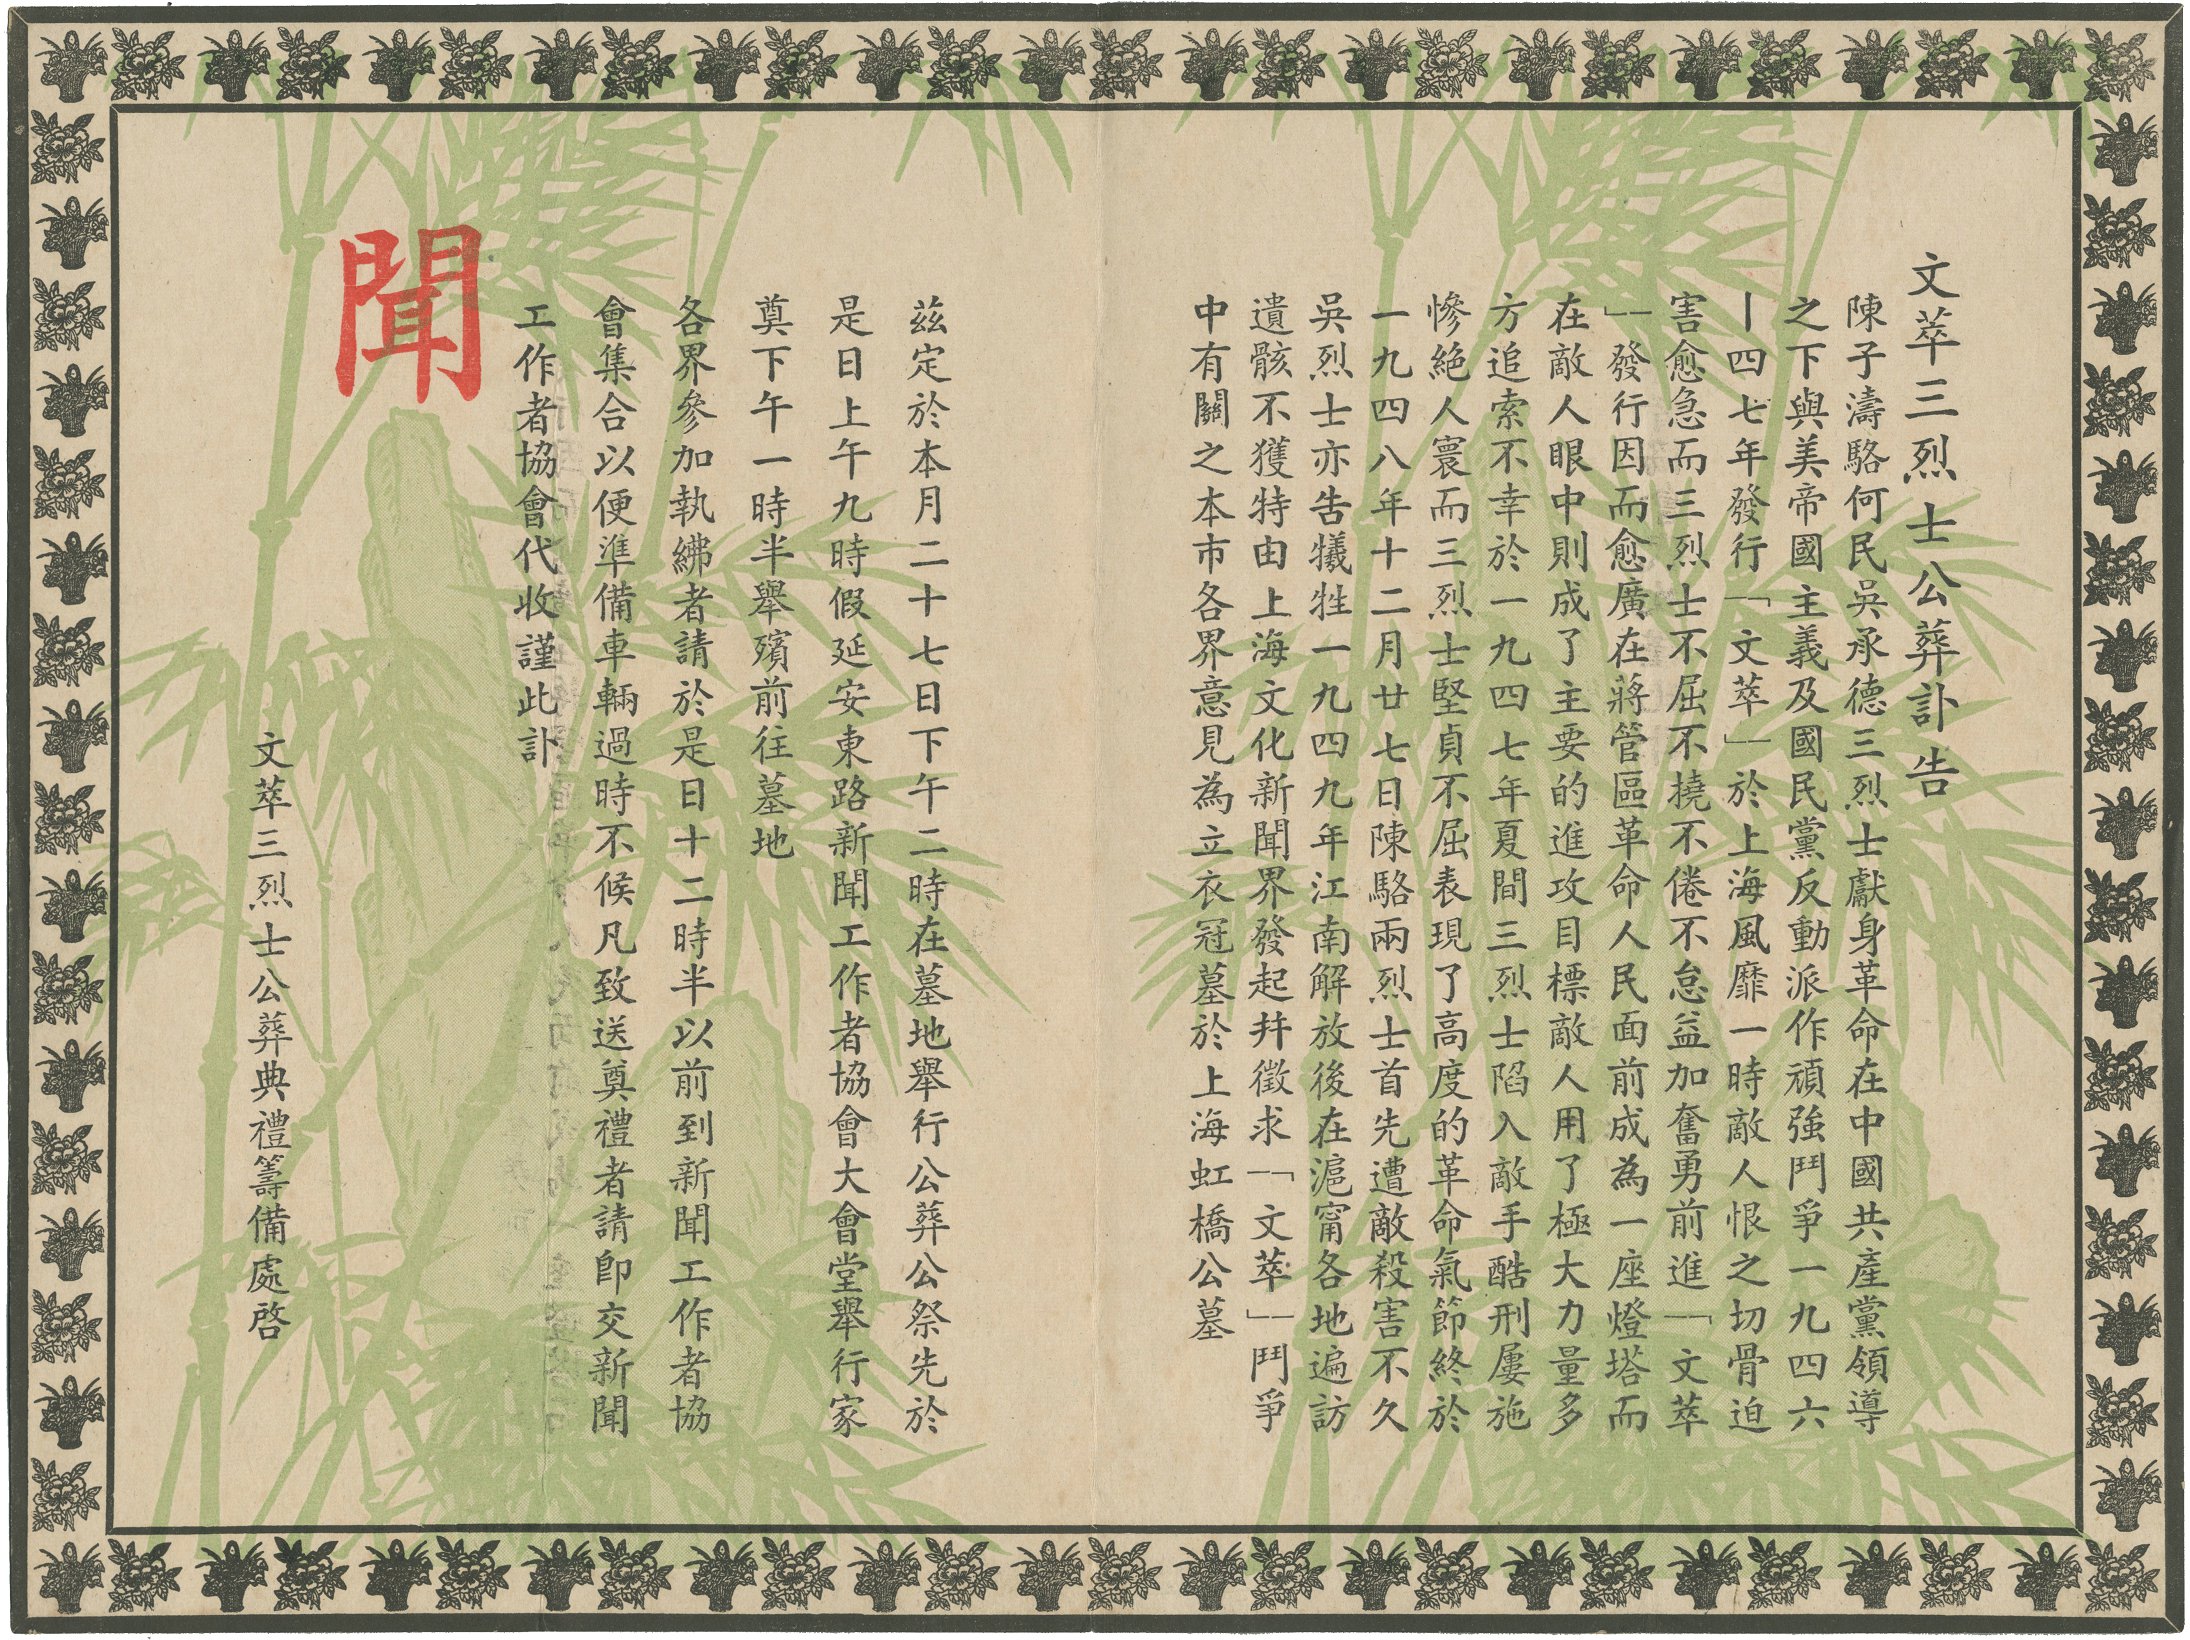 文萃三烈士公葬訃告
陳子濤駱何民吳承德三烈士獻身革命在中國共產黨領導
之下與美帝國主義及國民黨反動派作頑強鬥爭一九四六
—四七年發行「文萃」於上海風靡一時敵人恨之切骨迫
害愈急而三烈士不屈不撓不倦不怠益加奮勇前進「文萃
」發行因而愈廣在蔣管區革命人民面前成為一座燈塔而
在敵人眼中則成了主要的進攻目標敵人用了極大力量多
方追索不幸於一九四七年夏間三烈士陷入敵手酷刑屢施
慘絕人寰而三烈士堅貞不屈表現了高度的革命氣節終於
一九四八年十二月廿七日陳駱兩烈士首先遭敵殺害不久
吳烈士亦告犧牲一九四九年江南解放後在滬甯各地遍訪
遺骸不獲特由上海文化新聞界發起幷徵求「文萃」鬥爭
中有關之本市各界意見為立衣冠墓於上海虹橋公墓
茲定於本月二十七日下午二時在墓地舉行公葬公祭先於
是日上午九時假延安東路新聞工作者協會大會堂舉行家
奠下午一時半舉殯前往墓地
各界參加執紼者請於是日十二時半以前到新聞工作者協
會集合以便準備車輛過時不候凡致送奠禮者請卽交新聞
工作者協會代收謹此訃
聞
文萃三烈士公葬典禮籌備處啓